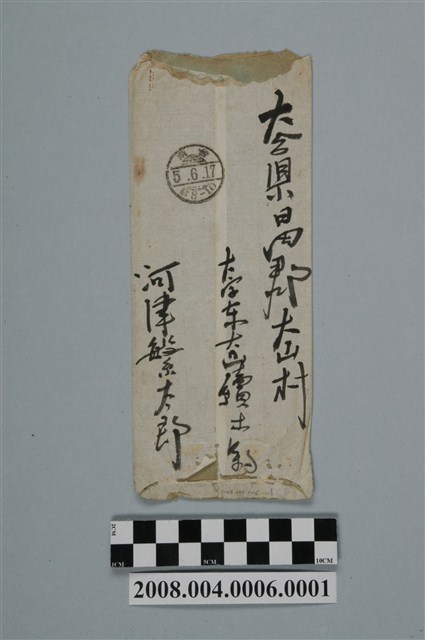 大分県日田郡大山村
大字東大山續木
河津繁太郎
5.6.17
后8-10
2CM
1CM
5CM
10CM
2008.004.0006.0001